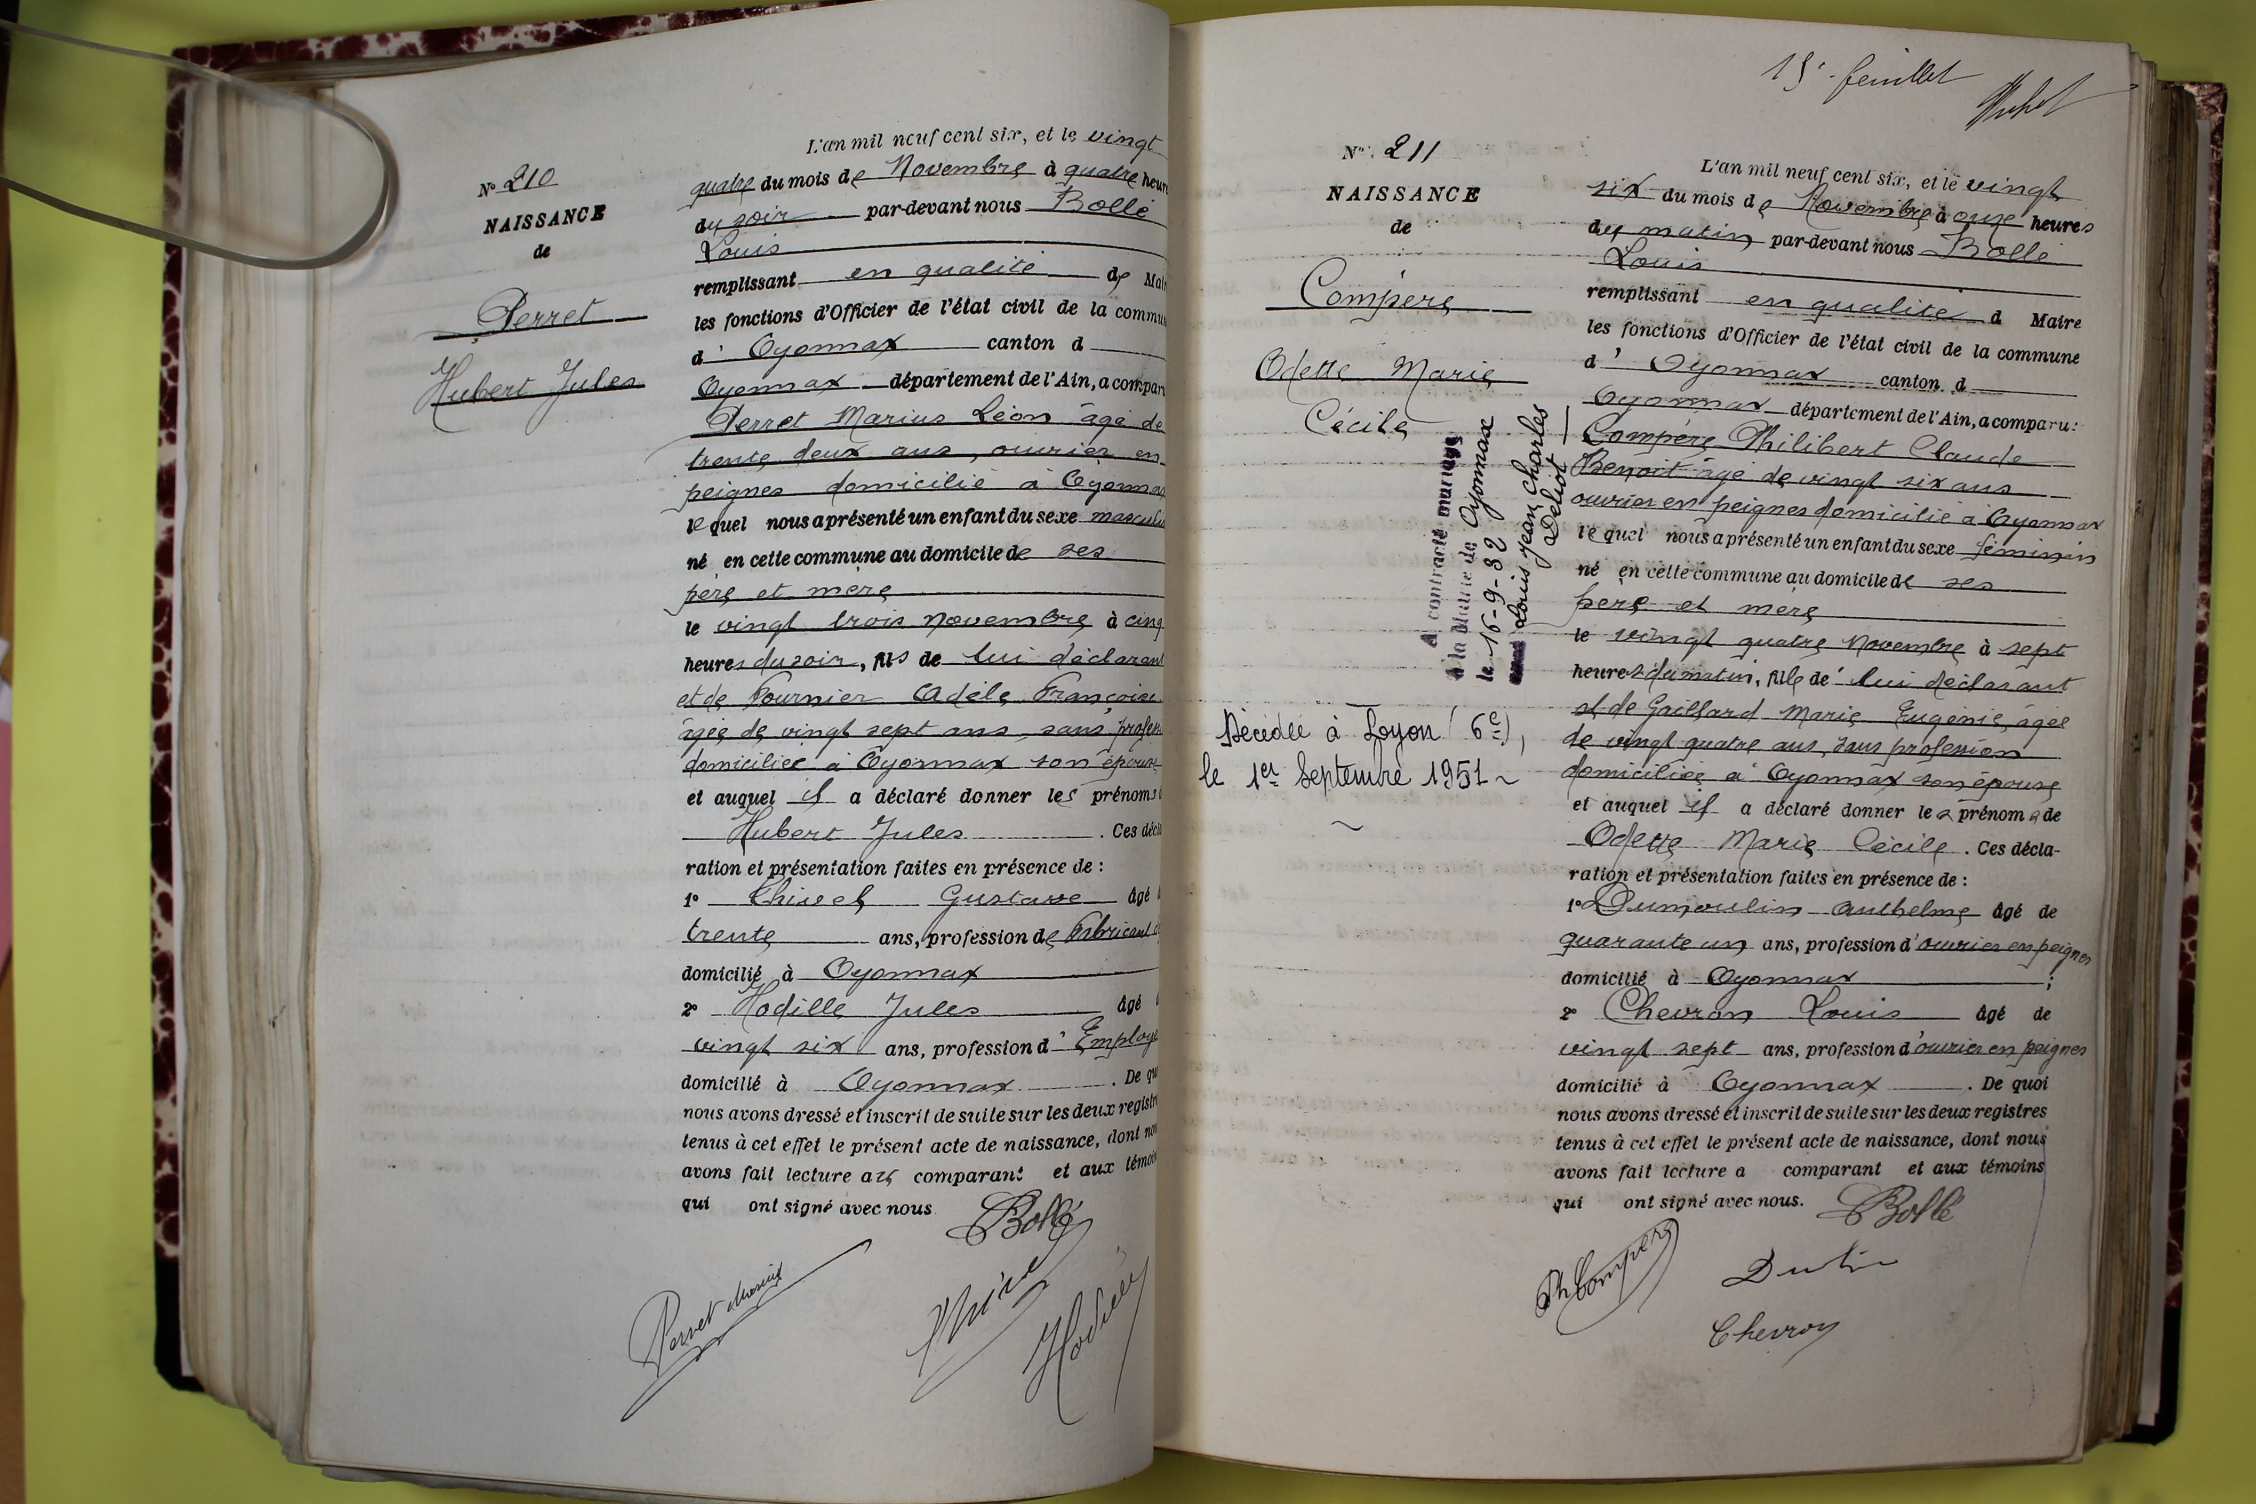 N° 210
NAISSANCE
de
Perret
Hubert Jules
L'an mil neuf cent six, et le vingt
quatre du mois de Novembre à quatre heure
du soir par-devant nous Bollé
Louis
remplissant en qualité de Mai
les fonctions d'Officier de l'état civil de la commun
d' Oyonnax canton d
Oyonnax département de l'Ain, a compar
Perret Marius Léon âgé de
trente deux ans, ouvrier en
peignes domicilié à Oyonnax
lequel nous a présenté un enfant du sexe masculin
né en cette commune au domicile de ses
père et mère
le vingt trois Novembre à cinq
heures du soir, fils de lui déclarant
et de Fournier Adèle Françoise
âgée de vingt sept ans, sans profession
domiciliée à Oyonnax son épouse
et auquel il a déclaré donner les prénoms
Hubert Jules . Ces décla
ration et présentation faites en présence de :
1° Gustave âgé
trente ans, profession de Fabricant
domicilié à Oyonnax
2° Hodille Jules âgé
vingt six ans, profession d' Employé
domicilié à Oyonnax . De qu
nous avons dressé et inscrit de suite sur les deux registr
tenus à cet effet le présent acte de naissance, dont no
avons fait lecture au comparant et aux témoi
qui ont signé avec nous
Bollé
Perret Marius
15e feuillet
N° 211
NAISSANCE
de
Compère
Odette Marie
Cécile
A contracté mariage
à la Mairie de Oyonnax
le 16-9-32
avec Louis Jean Charles
Décédée à Lyon (6e),
le 1er Septembre 1951
L'an mil neuf cent six, et le vingt
six du mois de Novembre à onze heures
du matin par-devant nous Bollé
Louis
remplissant en qualité d Maire
les fonctions d'Officier de l'état civil de la commune
d' Oyonnax canton d
Oyonnax département de l'Ain, a comparu:
Compère Philibert Claude
Benoit âgé de vingt six ans
ouvrier en peignes domicilié à Oyonnax
lequel nous a présenté un enfant du sexe féminin
né en cette commune au domicile de ses
père et mère
le vingt quatre Novembre à sept
heures du matin, fille de lui déclarant
et de Gaillard Marie Eugénie, âgée
de vingt quatre ans, sans profession
domiciliée à Oyonnax son épouse
et auquel il a déclaré donner les prénoms de
Odette Marie Cécile . Ces décla-
ration et présentation faites en présence de :
1° Dumoulin Anthelme âgé de
quarante un ans, profession d'ouvrier en peignes
domicilié à Oyonnax ;
2° Chevron Louis âgé de
vingt sept ans, profession d'ouvrier en peignes
domicilié à Oyonnax . De quoi
nous avons dressé et inscrit de suite sur les deux registres
tenus à cet effet le présent acte de naissance, dont nous
avons fait lecture a comparant et aux témoins
qui ont signé avec nous.
Bollé
Ph Compère
Chevron